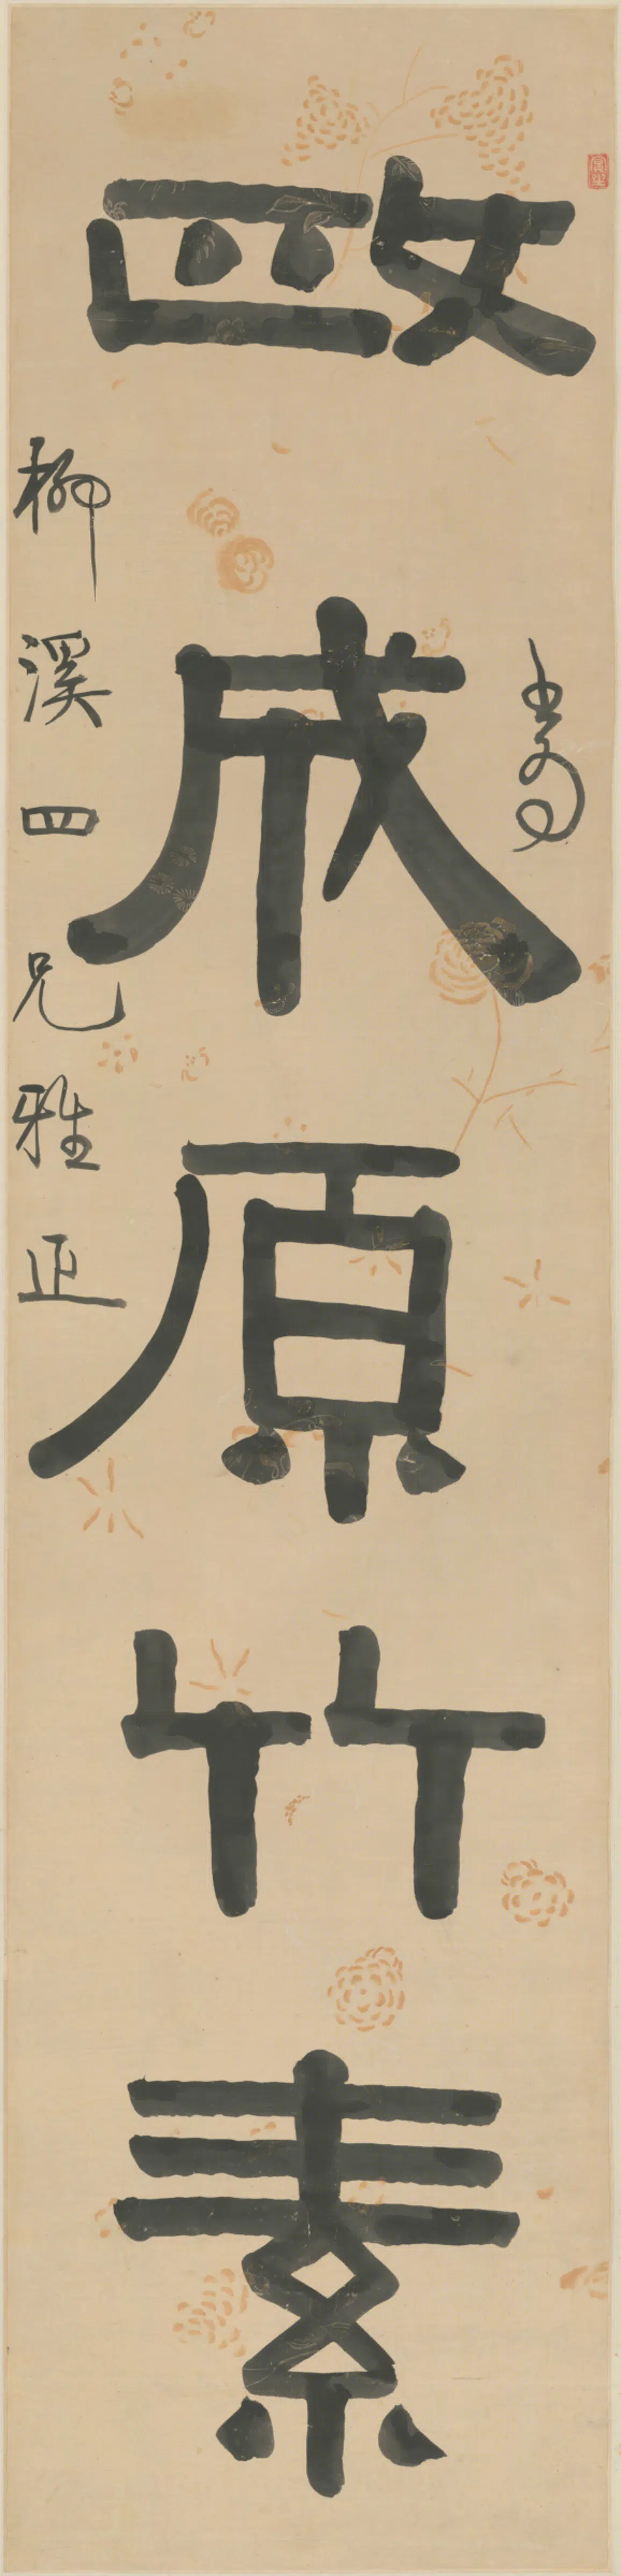 政成原竹素
柳溪四兄雅正